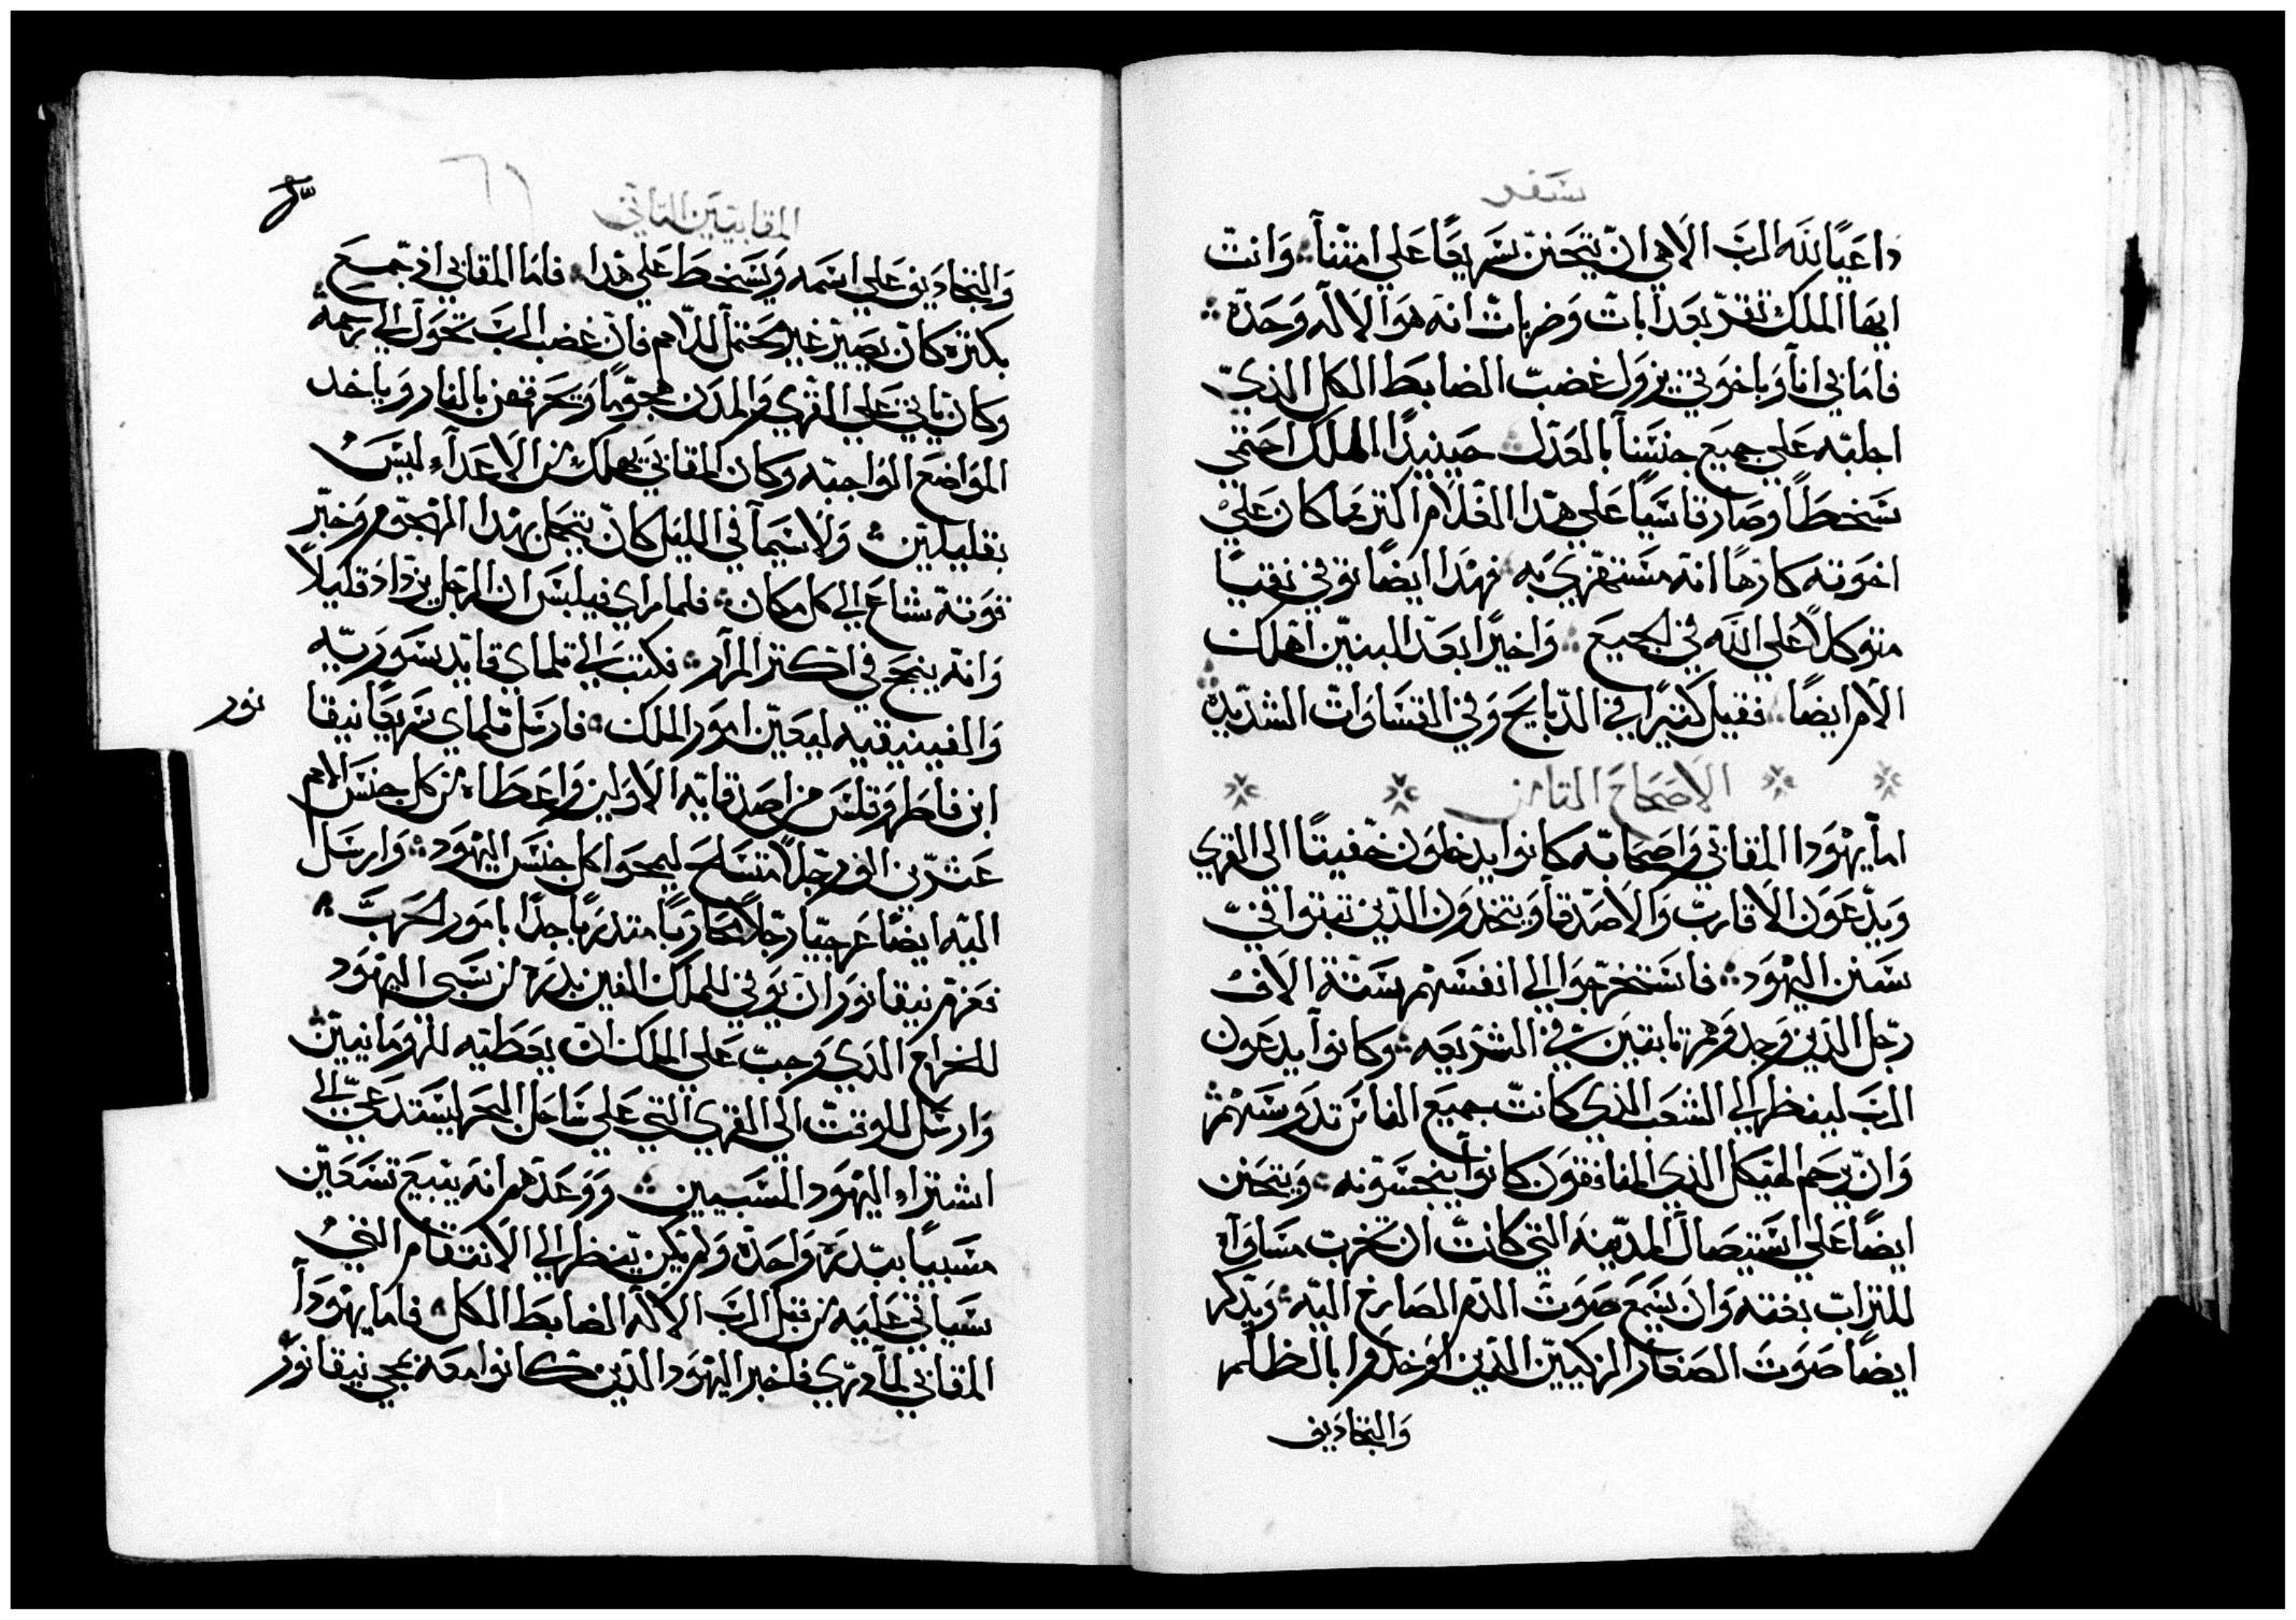 سفر
داعيًا لله الرب الاهي ان يتحنن سريعًا على امتنا وانت
ايها الملك تقر بعدابات وضربات انه هو الاله وحده
فاما في انا وباخوتي يزول غضب الضابط الكل الذي
اجلبه علي جميع جنسنا بالعدل حينيدًا الملك احتمي
سخطًا وصار قاسيًا علي هدا الغلام اكتر مما كان علي
اخوته كارهًا انه مستهزي به فهدا ايضًا توفي نقيًا
متوكلاً علي الله في الجميع واخيرًا بعد البنين اهلكت
الام ايضًا فقيل كتيرًا في الدبايح وفي القساوات الشديده
الاصحاح التامن
اما يهودا المقابي واصحابه كانوا يدخلون خفيتًا الى القري
ويدعون الاقارب والاصدقا ويتخدون الدين تبتوا في
سنن اليهود فاستخرجوا الي انفسهم ستة الاف
رجل الدين وجدوهم تابتين في الشريعه وكانوا يدعون
الرب لينظر الي الشعب الذي كانت جميع الناس تدوسهم
وان يرحم الهيكل الذي المنافقون كانوا ينجسونه ويتحنن
ايضًا علي استيصال المدينه التي كانت ان تخرب مساواه
للتراب بغته وان يسمع صوت الدم الصارخ اليه ويدكر
ايضًا صوت الصغار الزكيين الدين اوخدوا بالظلم
والتجاديف
المقابيين التاني
والتجاديف علي اسمه ويسخط علي هدا فاما المقابي اذ جمع
بكتره كان يصير غير محتمل للامم فان غضب الرب تحول الي رحمة
وكان ياتي علي القري والمدن هجومًا ويحرقهن بالنار وياخد
المواضع الواجبه وكان المقابي يهلك من الاعداء ليس
بقليلين ولا سيما في الليل كان يتجمل بهدا الهجوم وخبر
قوته شاع الي كل مكان فلما راي فيلبس ان الرجل يزداد قليلاً
وانه ينجح في اكتر المرار فكتب الي تلماي قايد سوريه
والفينيقيه ليعين امور الملك فارسل تلماي سريعًا نيقا
نور
ابن فاطروقلس من اصدقايه الاولين واعطاه من كل جنس الامم
عشرين الف رجلاً متسلح ليمحوا كل جنس اليهود وارسل
اليه ايضًا غرجيا رجلاً محاربًا متدربًا جدًا بامور الحرب
فعزم نيقانور ان يوفي للملك الفين بدره من سبي اليهود
للخراج الذي وجب علي الملك ان يعطيه للرومانيين
وارسل للوقت الى القري التي علي ساحل البحر ليستدعي الي
اشتراء اليهود المسبيين ووعدهم انه يبيع تسعين
مسبيًا ببدره واحده ولم يكن ينظر الي الانتقام التي
سياتي عليه من قبل الرب الاله الضابط الكل فاما يهودا
المقابي لما دري فاخبر اليهود الدين كانوا معه بمجي نيقانور